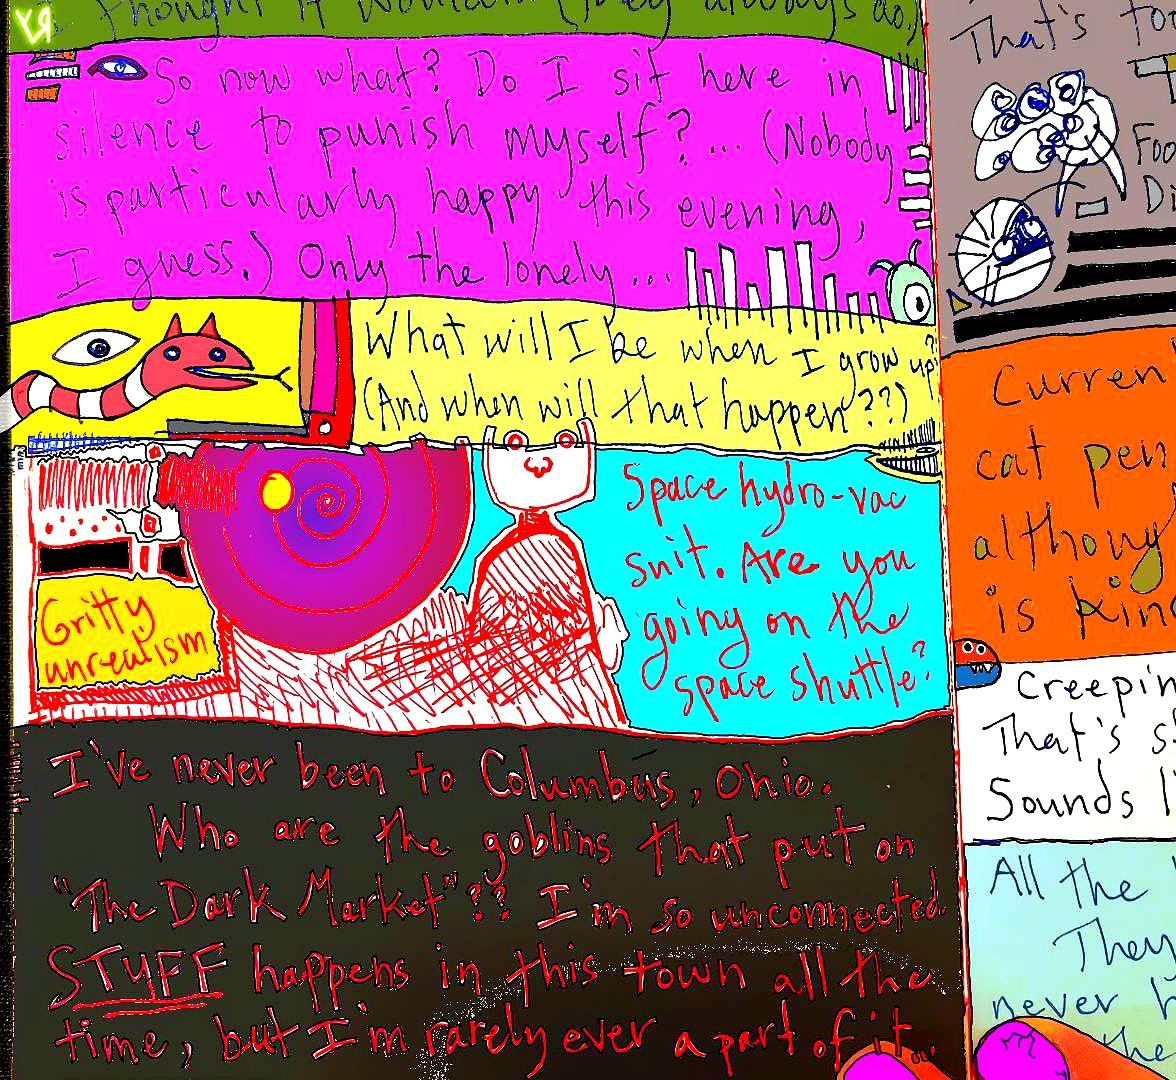 I thought it would. (They always do.)
So now what? Do I sit here in
silence to punish myself?... (Nobody
is particularly happy this evening,
I guess.) Only the lonely...
What will I be when I grow up?
(And when will that happen??)
Space hydro-vac
suit. Are you
going on the
space shuttle?
Gritty
unrealism
I've never been to Columbus, Ohio.
Who are the goblins that put on
"The Dark Market"?? I'm so unconnected.
STUFF happens in this town all the
time, but I'm rarely ever a part of it...
That's to
Foo
Di
Curren
cat pen
althoug
is kin
Creepin
That's s
Sounds l
All the
They
never h
the